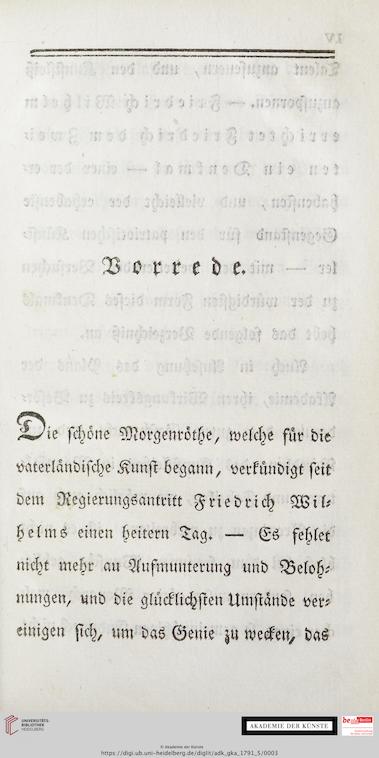 Vorrede.
Die schöne Morgenröthe, welche für die
vaterländische Kunst begann, verkündigt seit
dem Regierungsantritt Friedrich Wil-
helms einen heitern Tag. — Es fehlet
nicht mehr an Aufmunterung und Beloh-
nungen, und die glücklichsten Umstände ver-
einigen sich, um das Genie zu wecken, das
UNIVERSITÄTS-
BIBLIOTHEK
HEIDELBERG
AKADEMIE DER KÜNSTE
© Akademie der Künste
https://digi.ub.uni-heidelberg.de/diglit/adk_gka_1791_5/0003